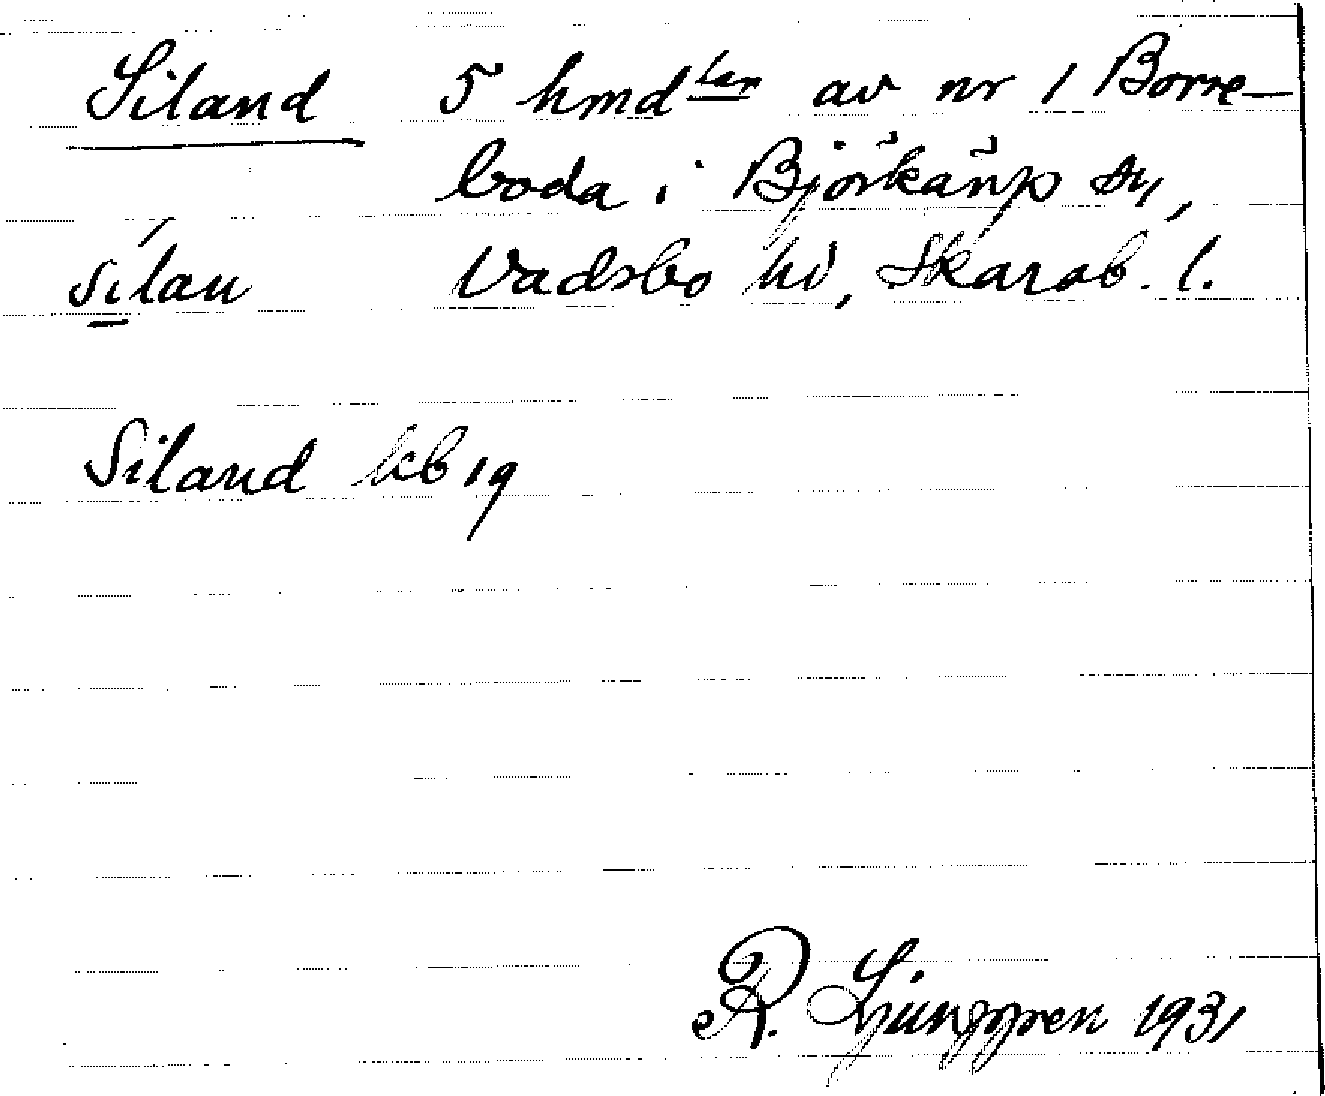 Siland 5 hmdter av nr 1 Borre-
boda i Björkäng sn,
sílan Vadsbo hd, Skarab. l.
Siland kb 19
R. Ljunggren 1931